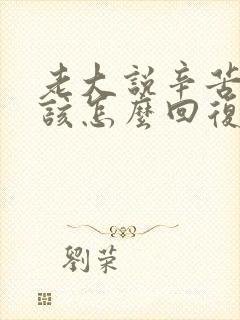 老大說辛苦
該怎麼回復
劉荣